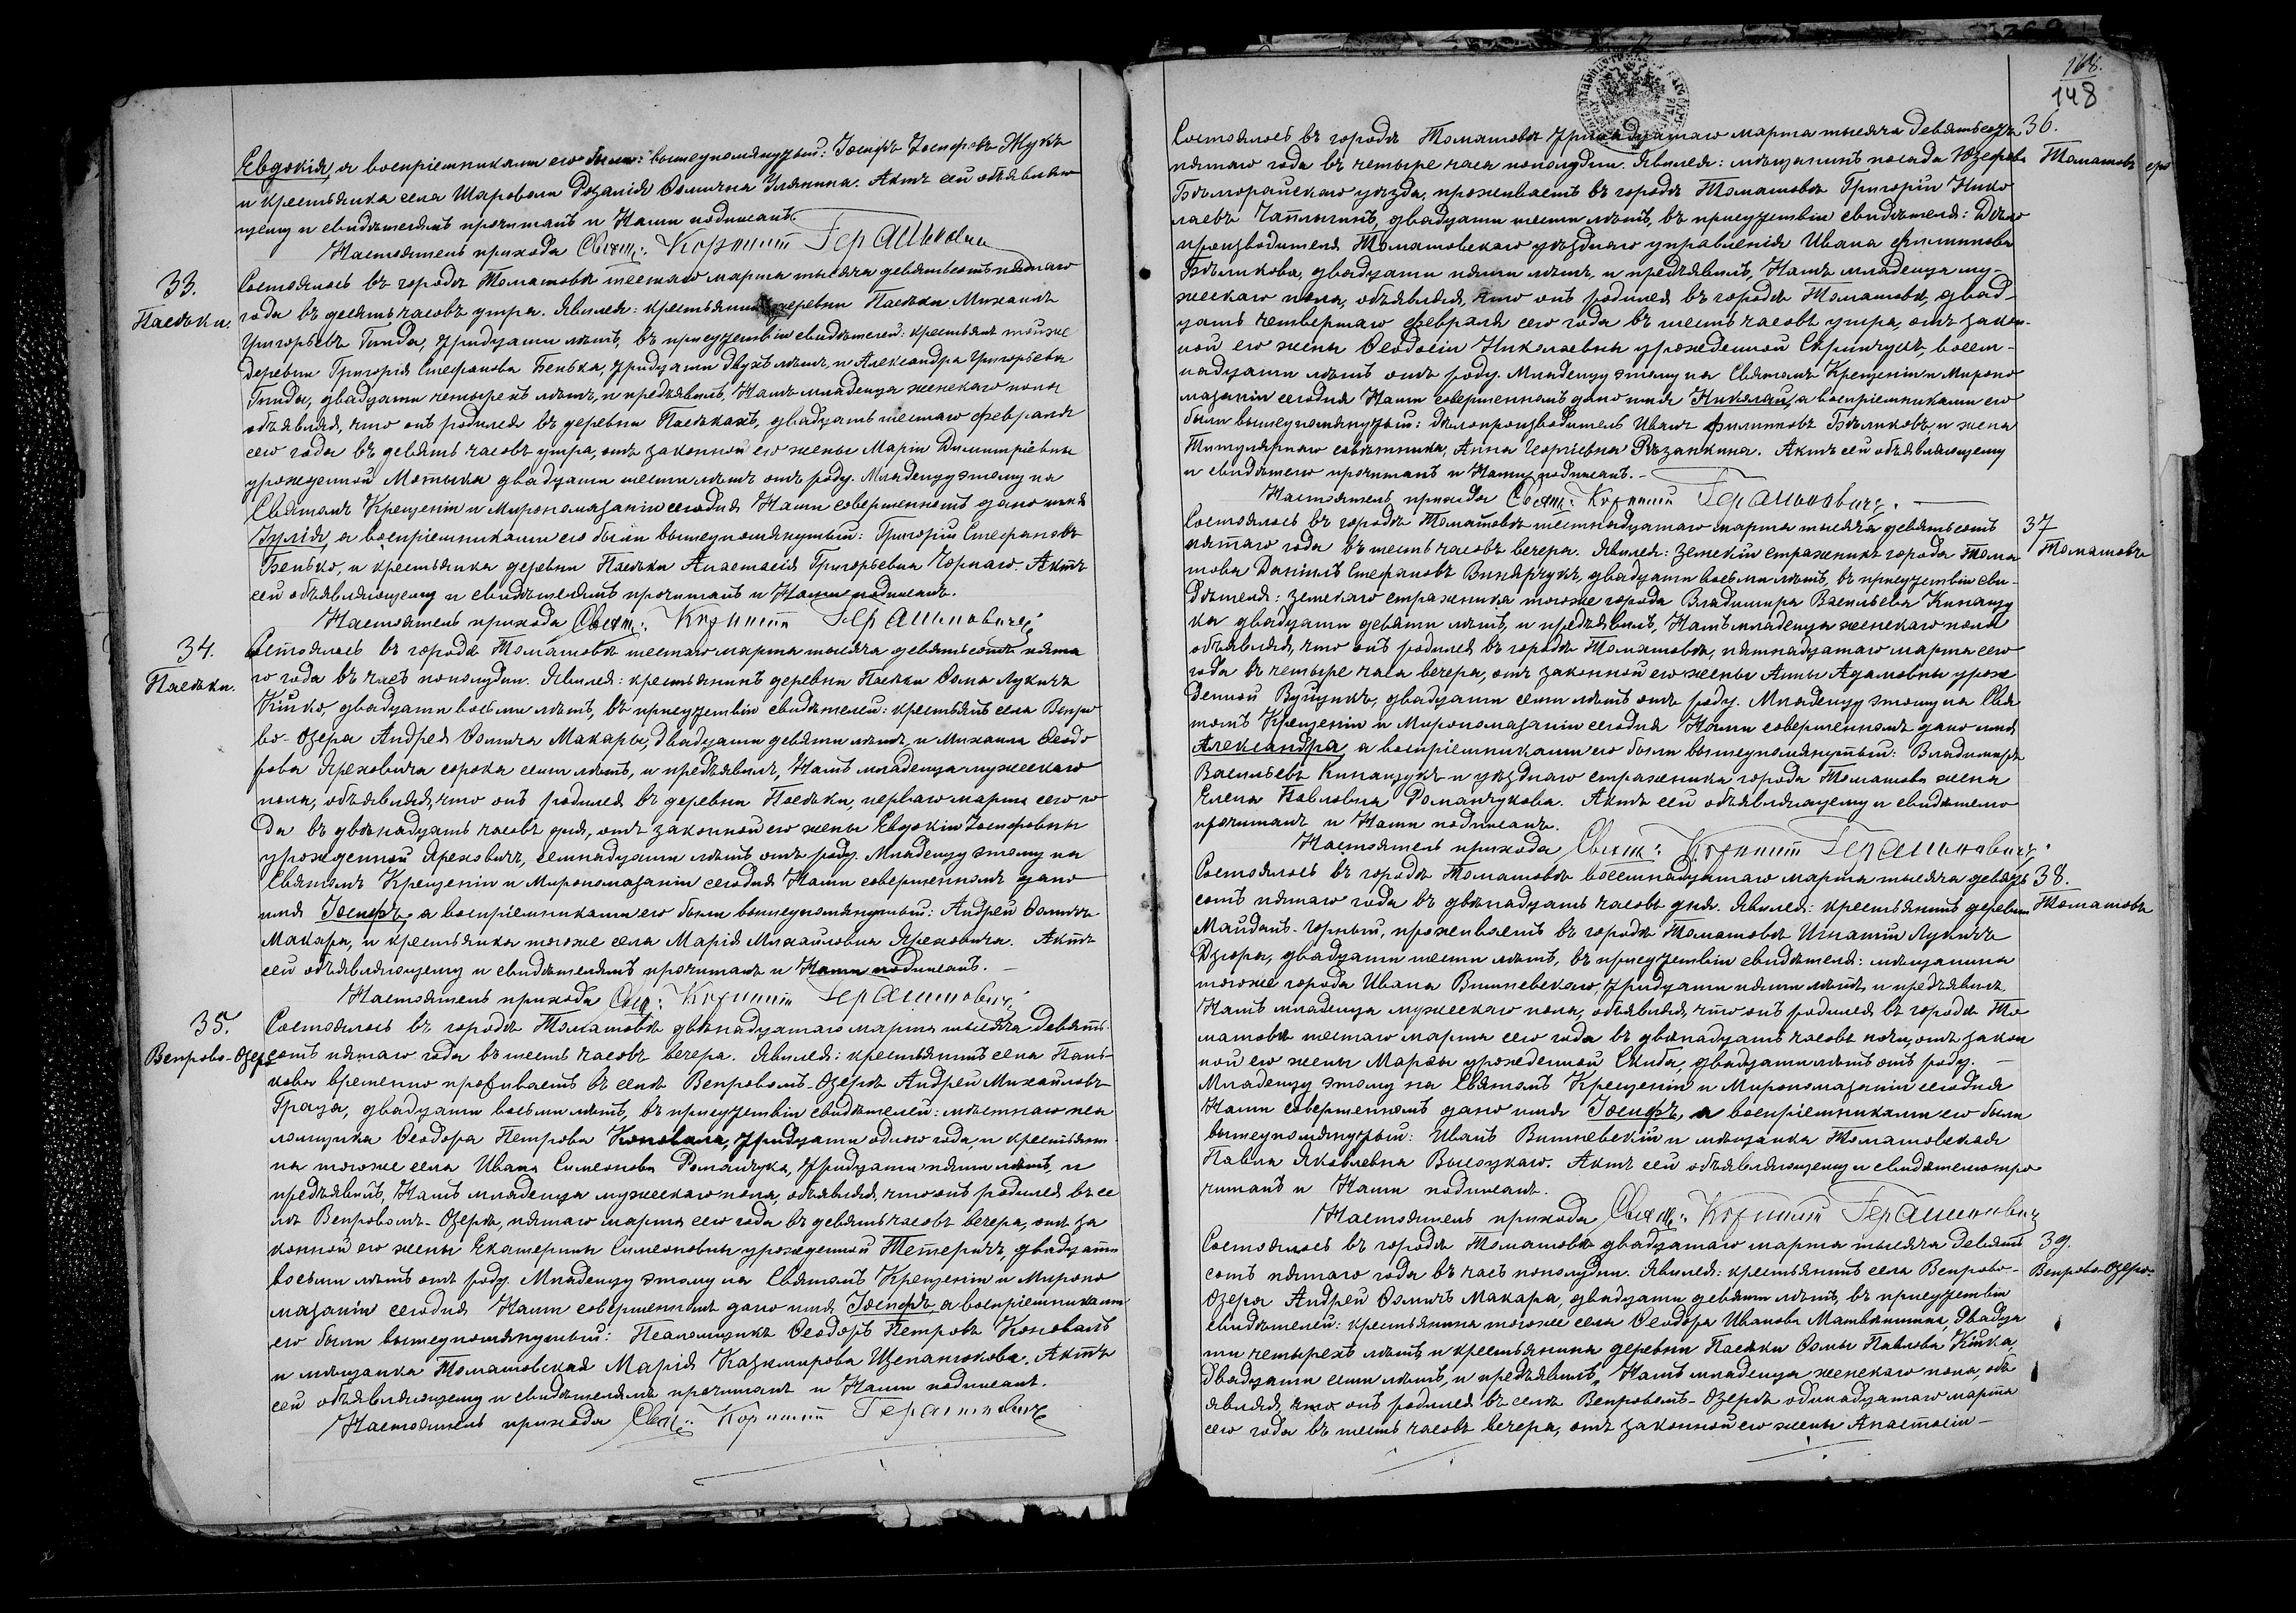 Евдокія, а воспріемниками его были: вышеупомянутый: Іосифъ Іосифовъ Жукъ
и крестьянка села Шароволи Розалія Ѳомична Улянина. Актъ сей объявляю
щему и свидѣтелямъ прочитанъ и Нами подписанъ.
Настоятель прихода Свящ: Корнилій Герашкови
33.
Пасѣки.
Состоялось въ городѣ Томашовѣ шестаго марта тысяча девятьсотъ пятаго
года въ десять часовъ утра. Явился: крестьянинъ деревни Пасѣки Михаилъ
Григорьевъ Гнида, тридцати лѣтъ, въ присутствіи свидѣтелей: крестьянъ тойже
деревни Григорія Стефанова Бенька, тридцати двухъ лѣтъ, и Александра Григорьева
Гниды, двадцати четырехъ лѣтъ, и предъявилъ, Намъ младенца женскаго пола
объявляя, что онъ родился въ деревни Пасѣкахъ, двадцать шестаго февраля
сего года въ девять часовъ утра, отъ законной его жены Маріи Димитріевны
урожденной Мотыка двадцати шести лѣтъ отъ роду. Младенцу этому на
Святомъ Крещеніи и Миропомазаніи сегодня Нами совершенномъ дано имя
Іулія, а воспріемниками его были вышеупомянутый: Григорій Стефановъ
Бенько, и крестьянка деревни Пасѣки Анастасія Григорьевна Чорнаго. Актъ
сей объявляющему и свидѣтелямъ прочитанъ и Нами подписанъ.
Настоятель прихода Свящ: Корнилій Герашковичъ
34.
Пасѣки.
Состоялось въ городѣ Томашовѣ шестаго марта тысяча девятьсотъ пята
го года въ часъ пополудни. Явился: крестьянинъ деревни Пасѣки Ѳома Лукичъ
Кійко, двадцати восьми лѣтъ, въ присутствіи свидѣтелей: крестьянъ села Вепро
во-Озера Андрея Ѳомича Макары, двадцати девяти лѣтъ, и Михаила Ѳеодо
рова Яреховича сорока семи лѣтъ, и предъявилъ, Намъ младенца мужескаго
пола, объявляя, что онъ родился въ деревни Пасѣки, перваго марта сего го
да въ двѣнадцать часовъ дня, отъ законной его жены Евдокіи Іосифовны
урожденной Яреховичъ, семнадцати лѣтъ отъ роду. Младенцу этому на
Святомъ Крещеніи и Миропомазаніи сегодня Нами совершенномъ дано
имя Іосифъ, а воспріемниками его были вышеупомянутый: Андрей Ѳомичъ
Макара, и крестьянка тогоже села Марія Михайловна Яреховича. Актъ
сей объявляющему и свидѣтелямъ прочитанъ и Нами подписанъ. —
Настоятель прихода Свщ: Корнилій Герашковичъ
35.
Вепрово-Озеро
Состоялось въ городѣ Томашовѣ двѣнадцатаго марта тысяча девять-
сотъ пятаго года въ шесть часовъ вечера. Явился: крестьянинъ села Пань-
кова временно проживаетъ въ селѣ Вепровомъ-Озерѣ Андрей Михайловъ
Граца, двадцати восьми лѣтъ, въ присутствіи свидѣтелей: мѣстнаго пса
ломщика Ѳеодора Петрова Коновала, тридцати одного года, и крестьяни
на тогоже села Ивана Симеонова Романчука, тридцати пяти лѣтъ, и
предъявилъ, Намъ младенца мужескаго пола, объявляя, что онъ родился въ се
лѣ Вепровомъ-Озерѣ, пятаго марта сего года въ девять часовъ вечера, отъ за
конной его жены Екатерины Симеоновны урожденной Тетеричъ, двадцати
восьми лѣтъ отъ роду. Младенцу этому на Святомъ Крещеніи и Миропо
мазаніи сегодня Нами совершенномъ дано имя Іосифъ, а воспріемниками
его были вышеупомянутый: Псаломщикъ Ѳеодоръ Петровъ Коновалъ
и мѣщанка Томашовская Марія Казимирова Щепанюкова. Актъ
сей объявляющему и свидѣтелямъ прочитанъ и Нами подписанъ.
Настоятель прихода Свящ: Корнилій Герашковичъ
168.
148
36.
Томашовъ
Состоялось въ городѣ Томашовѣ тринадцатаго марта тысяча девятьсотъ
пятаго года въ четыре часа пополудни. Явился: мѣщанинъ посада Юзефова
Бѣлгорайскаго уѣзда, проживаетъ въ городѣ Томашовѣ Григорій Нико
лаевъ Чаплыгинъ, двадцати шести лѣтъ, въ присутствіи свидѣтеля: Дѣло
производителя Томашовскаго уѣзднаго управленія Ивана Филиппова
Бѣликова, двадцати пяти лѣтъ, и предъявилъ, Намъ младенца му-
жескаго пола, объявляя, что онъ родился въ городѣ Томашовѣ, двад-
цать четвертаго февраля сего года въ шесть часовъ утра, отъ закон-
ной его жены Ѳеодосіи Николаевны урожденной Скрипчукъ, восем-
надцати лѣтъ отъ роду. Младенцу этому на Святомъ Крещеніи и Миропо
мазаніи сегодня Нами совершенномъ дано имя Николай, а воспріемниками его
были вышеупомянутый: Дѣлопроизводитель Иванъ Филипповъ Бѣликовъ, и жена
Титулярнаго совѣтника, Анна Георгіевна Рѣзанкина. Актъ сей объявляющему
и свидѣтелю прочитанъ и Нами подписанъ. —
Настоятель прихода Свящ: Корнилій Герашковичъ.
37
Томашовъ
Состоялось въ городѣ Томашовѣ шестнадцатаго марта тысяча девятьсотъ
пятаго года въ шесть часовъ вечера. Явился: земскій стражникъ города Тома
шова Даніилъ Стефановъ Винярчукъ, двадцати восьми лѣтъ, въ присутствіи сви-
дѣтеля: земскаго стражника тогоже города Владимира Васильева Кинащу
ка двадцати девяти лѣтъ, и предъявилъ, Намъ младенца женскаго пола
объявляя, что онъ родился въ городѣ Томашовѣ, пятнадцатаго марта сего
года въ четыре часа вечера, отъ законной его жены Анны Адамовны урож
денной Вуйцикъ, двадцати семи лѣтъ отъ роду. Младенцу этому на Свя
томъ Крещеніи и Миропомазаніи сегодня Нами совершенномъ дано имя
Александра, а воспріемниками его были вышеупомянутый: Владимиръ
Васильевъ Кинащукъ и уѣзднаго стражника города Томашова жена
Елена Павловна Романчукова. Актъ сей объявляющему и свидѣтелю
прочитанъ и Нами подписанъ.
Настоятель прихода Свящ: Корнилій Герашковичъ.
38.
Томашовъ
Состоялось въ городѣ Томашовѣ восемнадцатаго марта тысяча девять
сотъ пятаго года въ двѣнадцать часовъ дня. Явился: крестьянинъ деревни
Майданъ-Горный, проживаетъ въ городѣ Томашовѣ Игнатій Лукичъ
Дзюра, двадцати шести лѣтъ, въ присутствіи свидѣтеля: мѣщанина
тогоже города Ивана Вишневскаго, тридцати пяти лѣтъ, и предъявилъ
Намъ младенца мужескаго пола, объявляя, что онъ родился въ городѣ То
машовѣ шестаго марта сего года въ двѣнадцать часовъ ночи, отъ закон
ной его жены Марѳы урожденной Скиба, двадцати лѣтъ отъ роду. —
Младенцу этому на Святомъ Крещеніи и Миропомазаніи сегодня
Нами совершенномъ дано имя Іосифъ, а воспріемниками его были
вышеупомянутый: Иванъ Вишневскій и мѣщанка Томашовская
Павла Яковлевна Высоцкаго. Актъ сей объявляющему и свидѣтелю про
читанъ и Нами подписанъ.
Настоятель прихода Свящ: Корнилій Герашковичъ
39.
Вепрово-Озеро.
Состоялось въ городѣ Томашовѣ двадцатаго марта тысяча девять
сотъ пятаго года въ часъ пополудни. Явился: крестьянинъ села Вепрово-
Озера Андрей Ѳомичъ Макара, двадцати девяти лѣтъ, въ присутствіи
свидѣтелей: крестьянина тогоже села Ѳеодора Иванова Матвѣишина, двадца
ти четырехъ лѣтъ, и крестьянина деревни Пасѣки Ѳомы Павлова Кійка,
двадцати семи лѣтъ, и предъявилъ, Намъ младенца женскаго пола, объ
являя, что онъ родился въ селѣ Вепровомъ-Озерѣ одинадцатаго марта
сего года въ шесть часовъ вечера, отъ законной его жены Анастасіи —